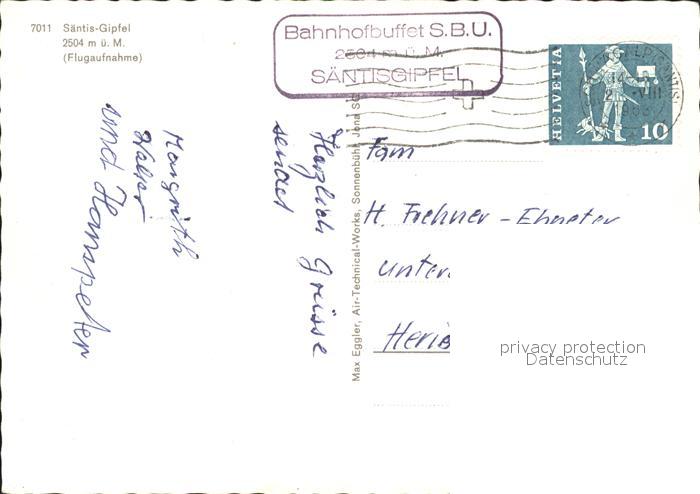 7011 Säntis-Gipfel
2504 m ü. M.
(Flugaufnahme)
Bahnhofbuffet S.B.U.
2504 m ü. M.
SÄNTISGIPFEL
HELVETIA
10
Herzlich Grüsse
sendet
Margrith
und Hanspeter
Max Eggler, Air-Technical-Works, Sonnenbühl, Jona SG
Fam
H. Frehner - Ehmeter
Unter
Heris
privacy protection
Datenschutz